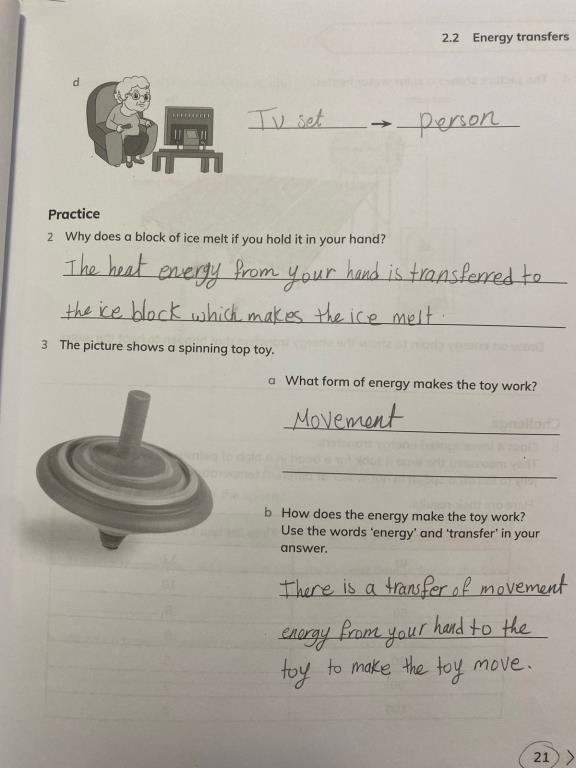 2.2 Energy transfers
d
TV set → person
Practice
2 Why does a block of ice melt if you hold it in your hand?
The heat energy from your hand is transferred to
the ice block which makes the ice melt.
3 The picture shows a spinning top toy.
a What form of energy makes the toy work?
Movement
b How does the energy make the toy work?
Use the words 'energy' and 'transfer' in your
answer.
There is a transfer of movement
energy from your hand to the
toy to make the toy move.
21